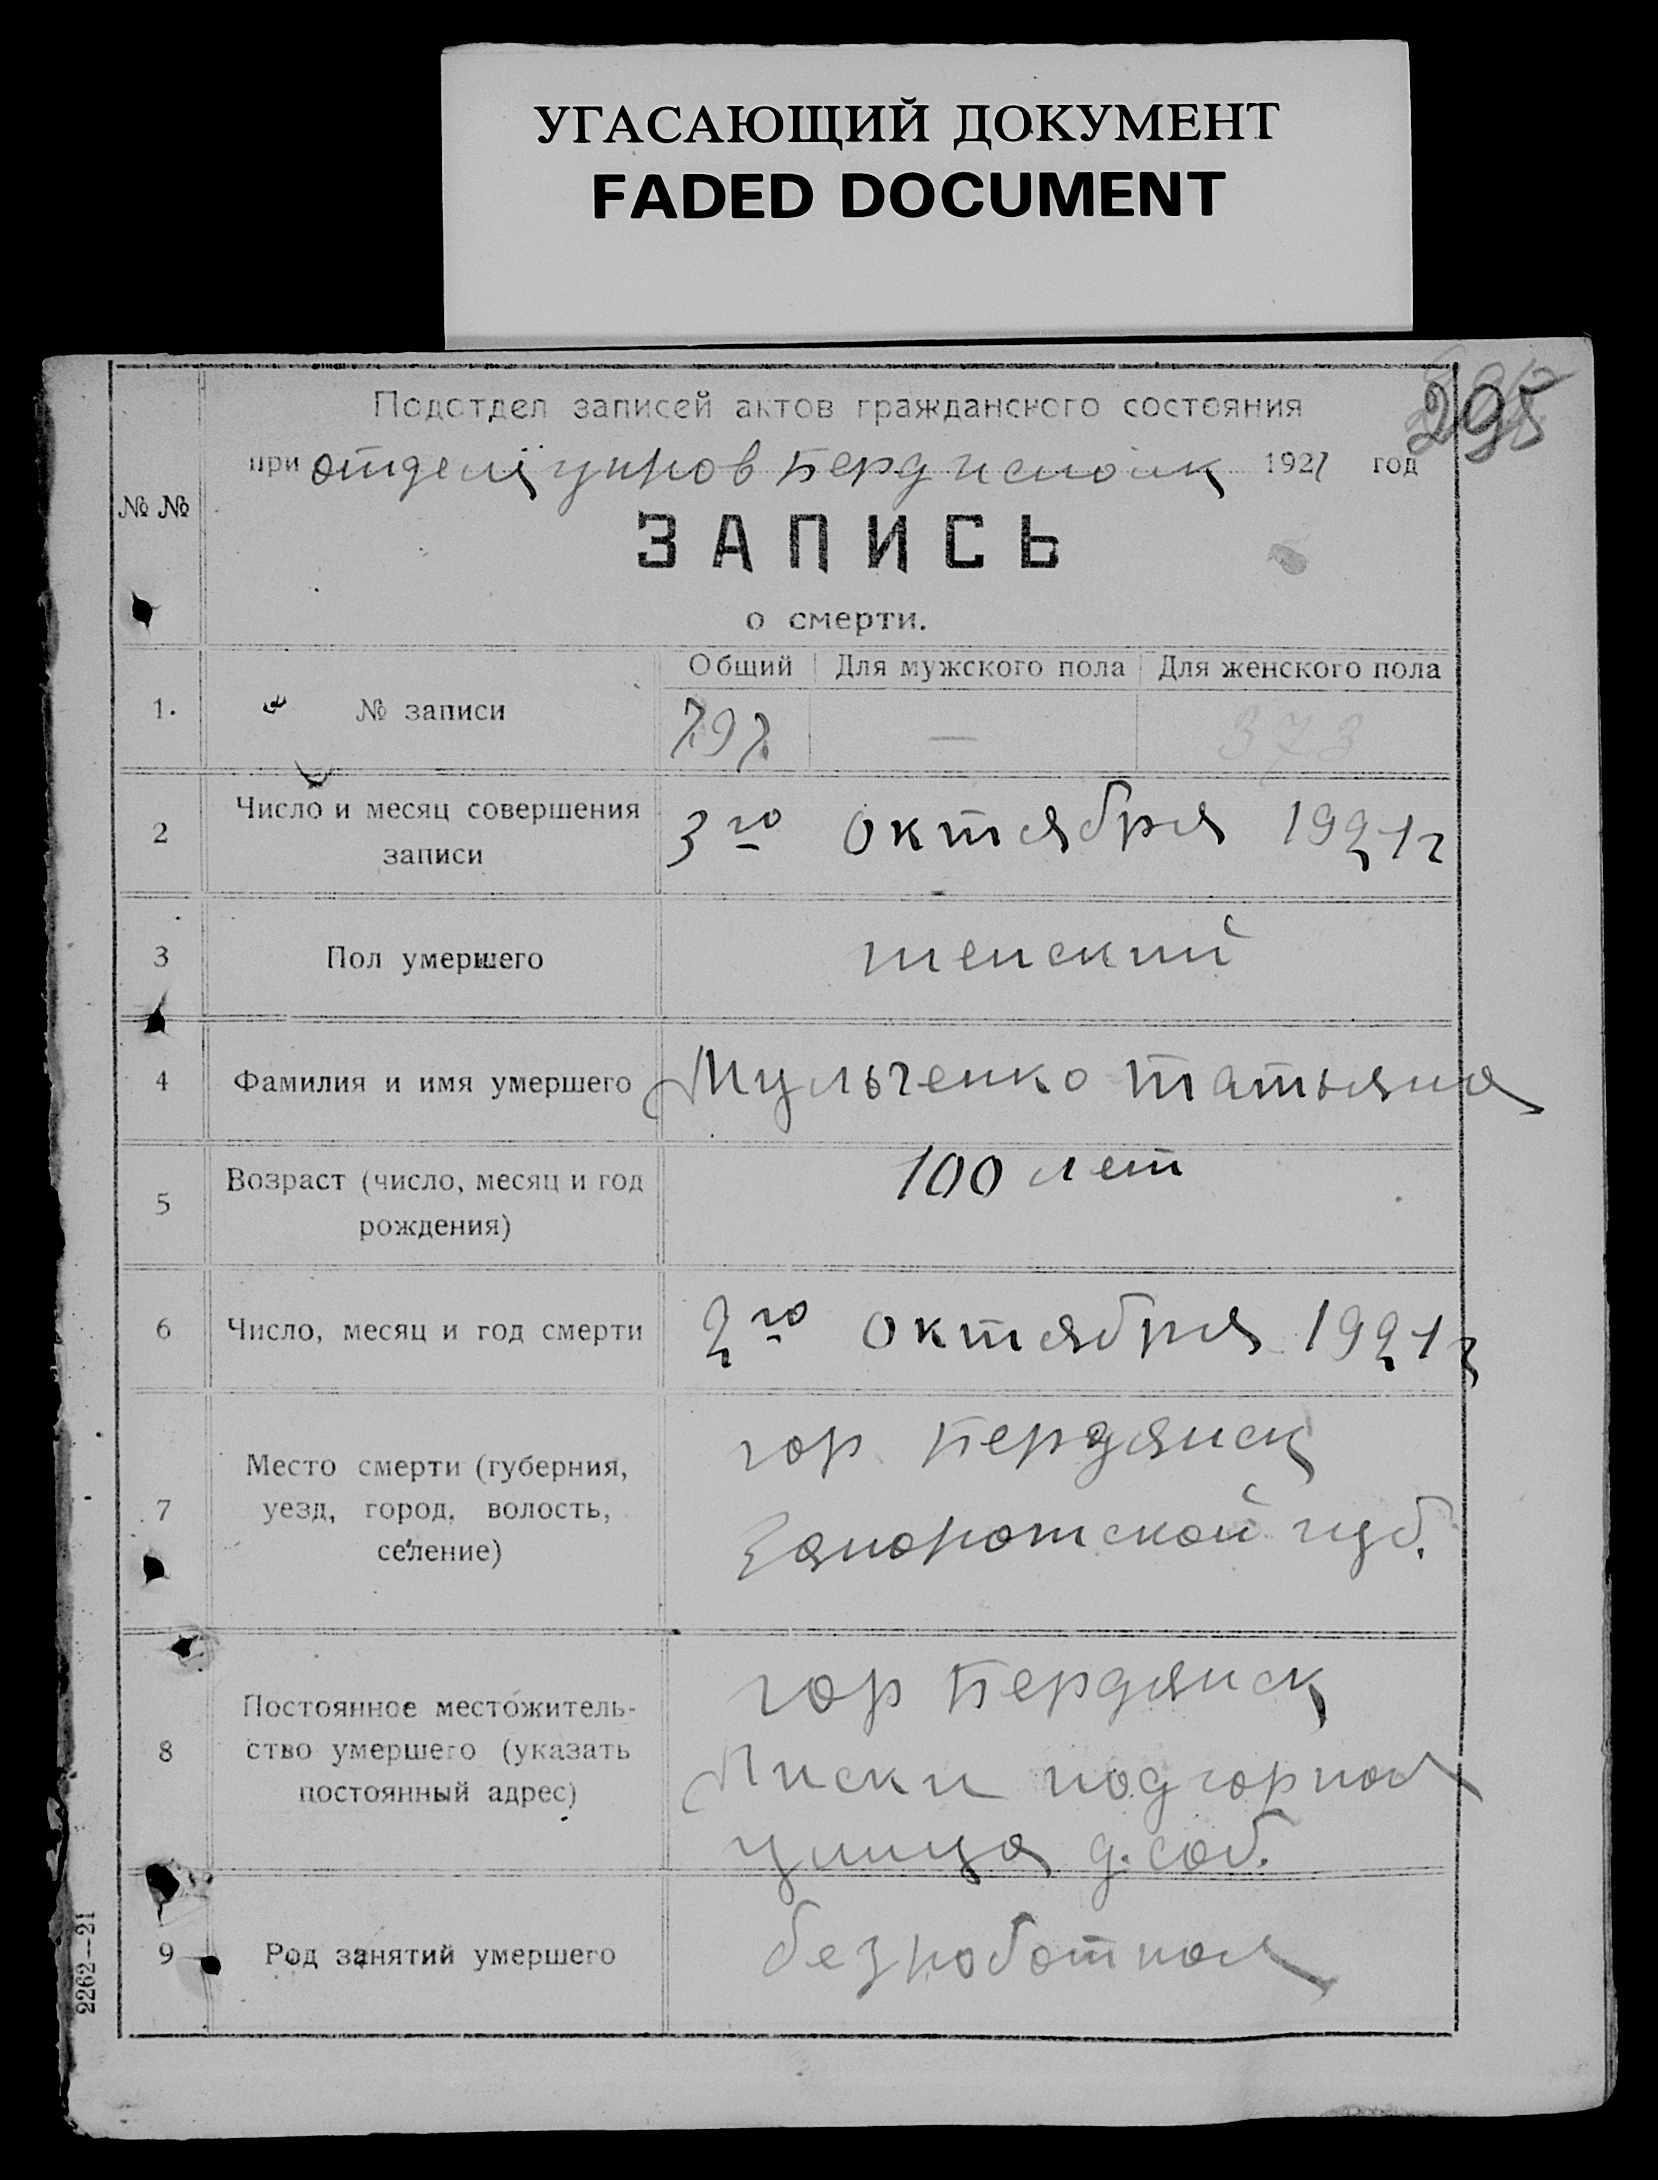 УГАСАЮЩИЙ ДОКУМЕНТ
FADED DOCUMENT
295
Подотдел записей актов гражданского состояния
при отдел управ Бердисполк 1921 год
№ №
ЗАПИСЬ
о смерти.
Общий Для мужского пола Для женского пола
1. № записи 797. — 373
2 Число и месяц совершения
записи
3го октября 1921г
3 Пол умершего женский
4 Фамилия и имя умершего Мульченко Татьяна
5 Возраст (число, месяц и год
рождения)
100 лет
6 Число, месяц и год смерти 2го октября 1921г
7 Место смерти (губерния,
уезд, город, волость,
селение)
гор Бердянск
Запорожской губ.
8 Постоянное местожитель-
ство умершего (указать
постоянный адрес)
гор Бердянск
Лиски подгорная
улица д. соб.
9 Род занятий умершего безработная
2262—21